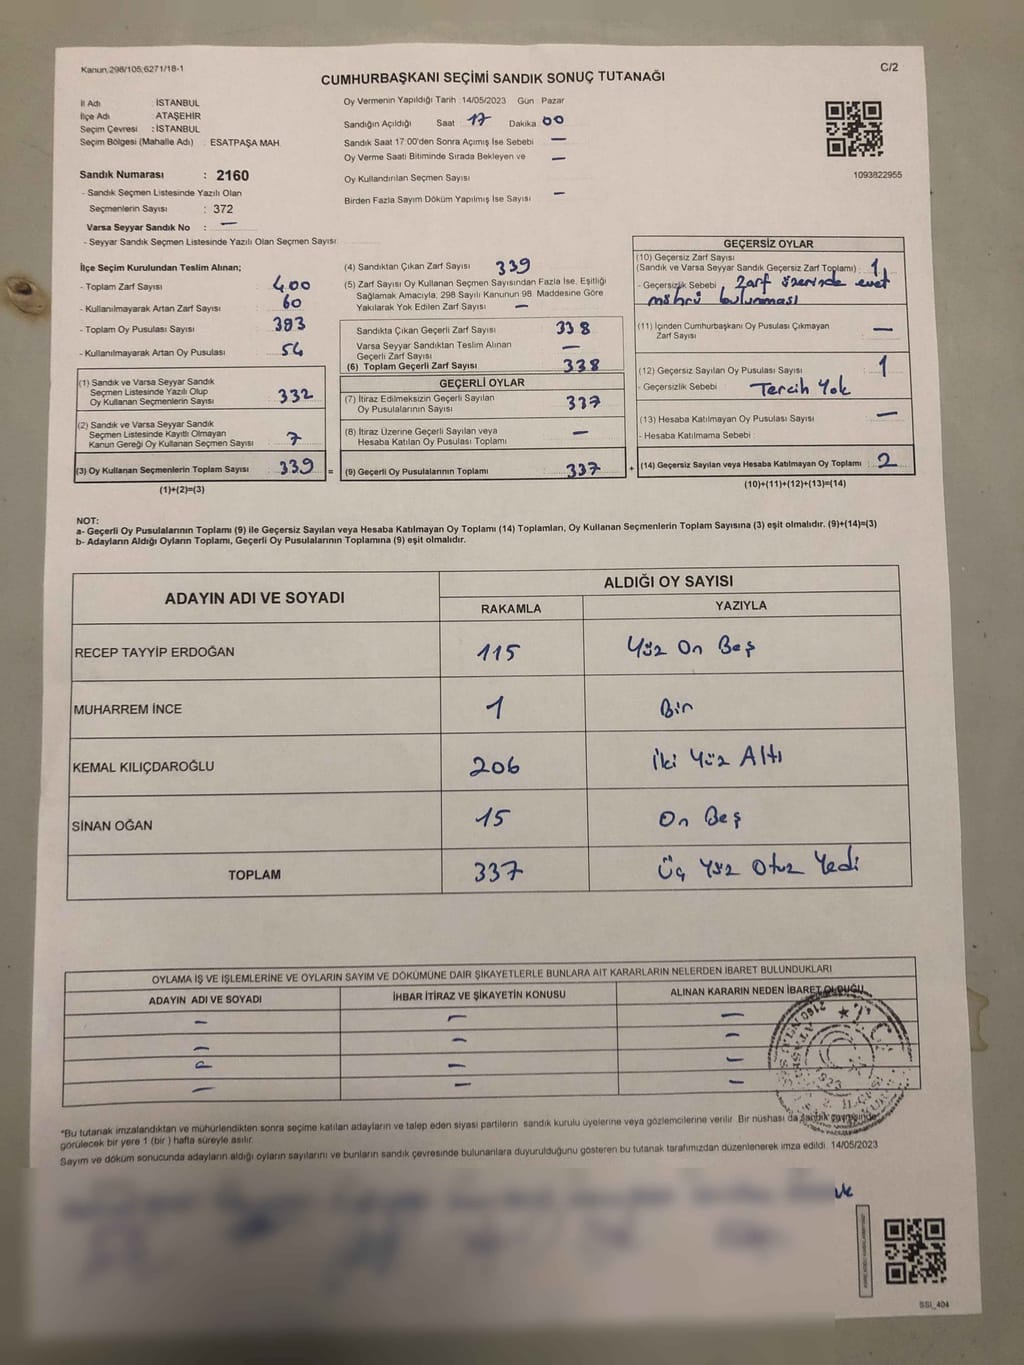 Kanun,298/105;6271/18-1
C/2
CUMHURBAŞKANI SEÇİMİ SANDIK SONUÇ TUTANAĞI
İl Adı : İSTANBUL
İlçe Adı : ATAŞEHİR
Seçim Çevresi : İSTANBUL
Seçim Bölgesi (Mahalle Adı) : ESATPAŞA MAH.
Sandık Numarası : 2160
- Sandık Seçmen Listesinde Yazılı Olan
Seçmenlerin Sayısı : 372
Varsa Seyyar Sandık No : —
- Seyyar Sandık Seçmen Listesinde Yazılı Olan Seçmen Sayısı:
Oy Vermenin Yapıldığı Tarih :14/05/2023 Gün : Pazar
Sandığın Açıldığı Saat 17 Dakika 00
Sandık Saat 17:00'den Sonra Açımış İse Sebebi —
Oy Verme Saati Bitiminde Sırada Bekleyen ve —
Oy Kullandırılan Seçmen Sayısı
Birden Fazla Sayım Döküm Yapılmış İse Sayısı —
1093822955
İlçe Seçim Kurulundan Teslim Alınan;
- Toplam Zarf Sayısı : 400
- Kullanılmayarak Artan Zarf Sayısı : 60
- Toplam Oy Pusulası Sayısı : 393
- Kullanılmayarak Artan Oy Pusulası : 54
(1) Sandık ve Varsa Seyyar Sandık
Seçmen Listesinde Yazılı Olup
Oy Kullanan Seçmenlerin Sayısı : 332
(2) Sandık ve Varsa Seyyar Sandık
Seçmen Listesinde Kayıtlı Olmayan
Kanun Gereği Oy Kullanan Seçmen Sayısı : 7
(3) Oy Kullanan Seçmenlerin Toplam Sayısı : 339
(1)+(2)=(3)
=
(4) Sandıktan Çıkan Zarf Sayısı : 339
(5) Zarf Sayısı Oy Kullanan Seçmen Sayısından Fazla İse, Eşitliği
Sağlamak Amacıyla, 298 Sayılı Kanunun 98. Maddesine Göre
Yakılarak Yok Edilen Zarf Sayısı : —
Sandıkta Çıkan Geçerli Zarf Sayısı : 338
Varsa Seyyar Sandıktan Teslim Alınan
Geçerli Zarf Sayısı : —
(6) Toplam Geçerli Zarf Sayısı : 338
GEÇERLİ OYLAR
(7) İtiraz Edilmeksizin Geçerli Sayılan
Oy Pusulalarının Sayısı : 337
(8) İtiraz Üzerine Geçerli Sayılan veya
Hesaba Katılan Oy Pusulası Toplamı : —
(9) Geçerli Oy Pusulalarının Toplamı : 337
+
GEÇERSİZ OYLAR
(10) Geçersiz Zarf Sayısı
(Sandık ve Varsa Seyyar Sandık Geçersiz Zarf Toplamı) : 1
- Geçersizlik Sebebi : Zarf üzerinde evet
mührü bulunması
(11) İçinden Cumhurbaşkanı Oy Pusulası Çıkmayan
Zarf Sayısı : —
(12) Geçersiz Sayılan Oy Pusulası Sayısı : 1
- Geçersizlik Sebebi : Tercih Yok
(13) Hesaba Katılmayan Oy Pusulası Sayısı : —
- Hesaba Katılmama Sebebi :
(14) Geçersiz Sayılan veya Hesaba Katılmayan Oy Toplamı : 2
(10)+(11)+(12)+(13)=(14)
NOT:
a- Geçerli Oy Pusulalarının Toplamı (9) ile Geçersiz Sayılan veya Hesaba Katılmayan Oy Toplamı (14) Toplamları, Oy Kullanan Seçmenlerin Toplam Sayısına (3) eşit olmalıdır. (9)+(14)=(3)
b- Adayların Aldığı Oyların Toplamı, Geçerli Oy Pusulalarının Toplamına (9) eşit olmalıdır.
ADAYIN ADI VE SOYADI
ALDIĞI OY SAYISI
RAKAMLA YAZIYLA
RECEP TAYYİP ERDOĞAN 115 Yüz On Beş
MUHARREM İNCE 1 Bir
KEMAL KILIÇDAROĞLU 206 İki Yüz Altı
SİNAN OĞAN 15 On Beş
TOPLAM 337 Üç Yüz Otuz Yedi
OYLAMA İŞ VE İŞLEMLERİNE VE OYLARIN SAYIM VE DÖKÜMÜNE DAİR ŞİKAYETLERLE BUNLARA AİT KARARLARIN NELERDEN İBARET BULUNDUKLARI
ADAYIN ADI VE SOYADI İHBAR İTİRAZ VE ŞİKAYETİN KONUSU ALINAN KARARIN NEDEN İBARET OLDUĞU
— — —
— — —
— — —
— — —
T.C.
2160
*Bu tutanak imzalandıktan ve mühürlendikten sonra seçime katılan adayların ve talep eden siyasi partilerin sandık kurulu üyelerine veya gözlemcilerine verilir. Bir nüshası da sandık çevresinde
görülecek bir yere 1 (bir ) hafta süreyle asılır.
Sayım ve döküm sonucunda adayların aldığı oyların sayılarını ve bunların sandık çevresinde bulunanlara duyurulduğunu gösteren bu tutanak tarafımızdan düzenlenerek imza edildi. 14/05/2023
SSI_404